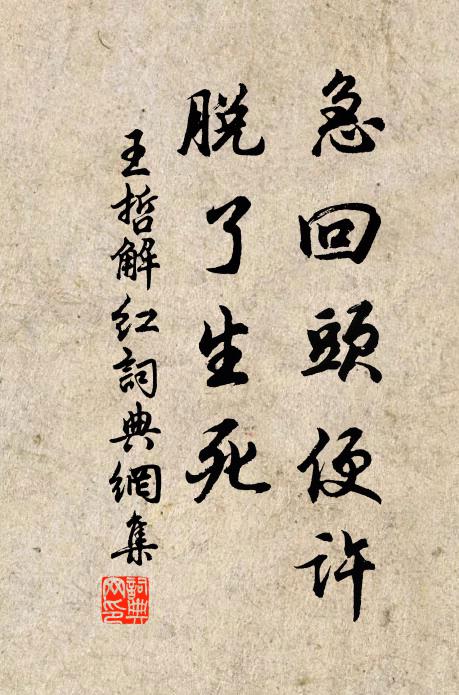 急回頭便許
脫了生死
王哲解紅詞典網集
詞典